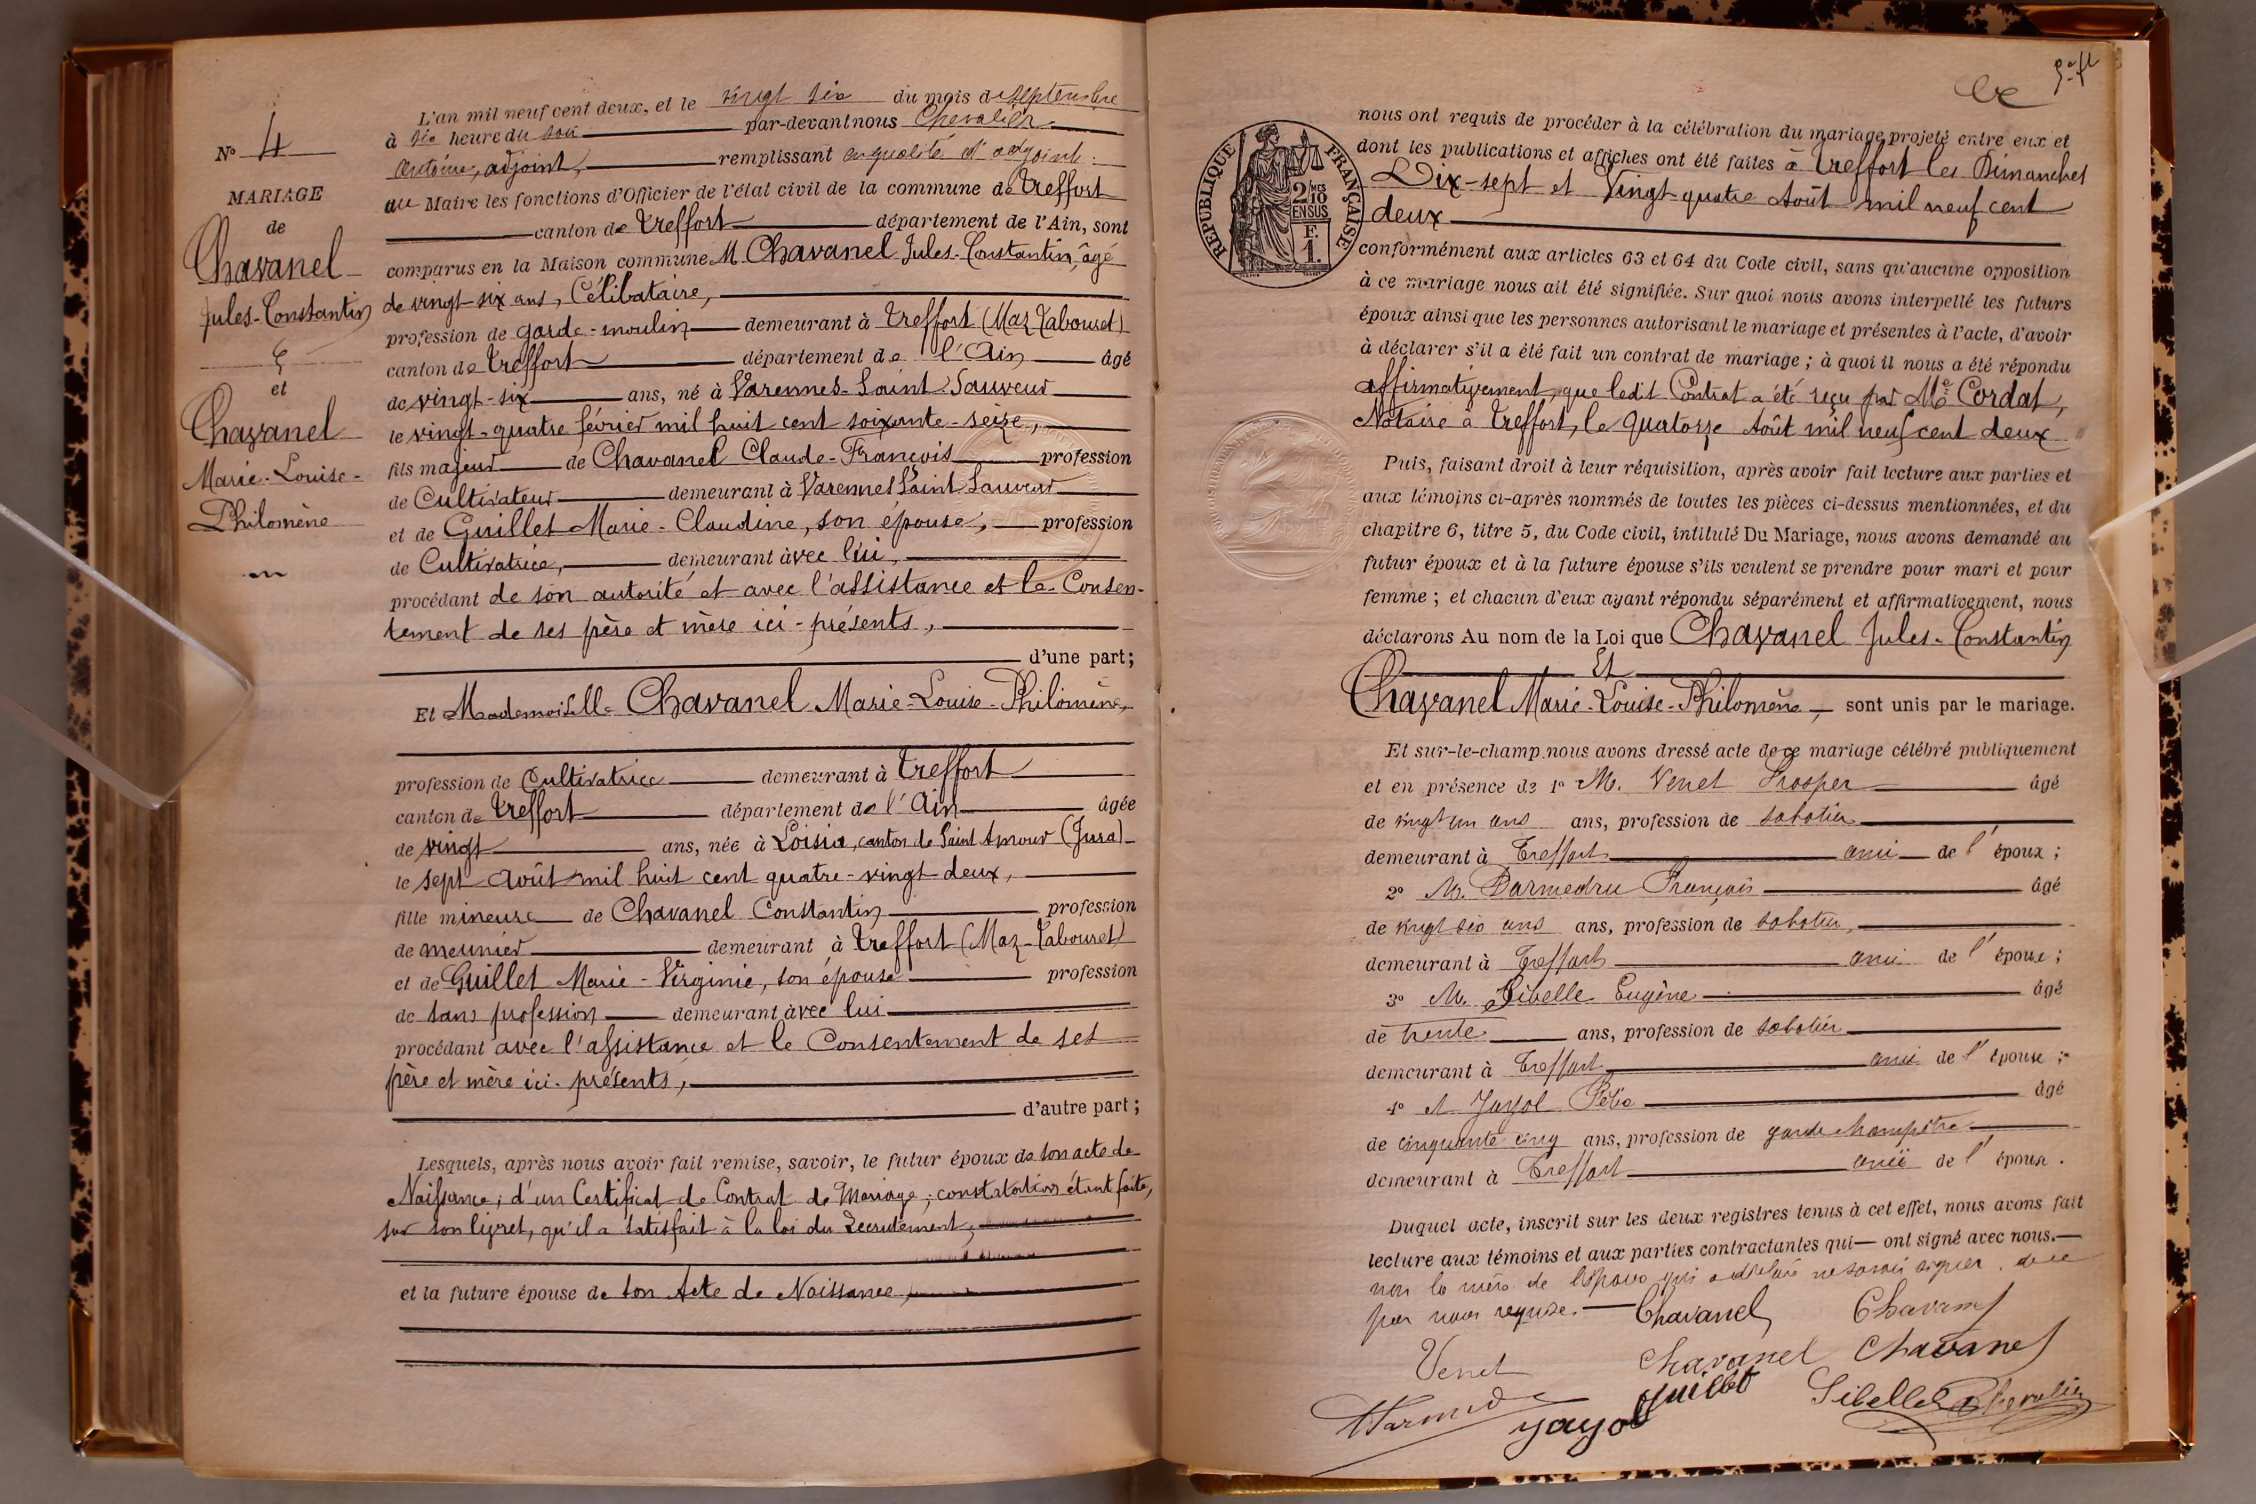 L'an mil neuf cent deux, et le vingt six du mois de septembre
à six heure du soir par-devant nous Chevalier
Antoine, adjoint, remplissant en qualité d'adjoint
au Maire les fonctions d'Officier de l'état civil de la commune de Treffort
canton de Treffort département de l'Ain, sont
comparus en la Maison commune M. Chavanel Jules-Constantin, âgé
de vingt-six ans, Célibataire,
profession de garde-moulin demeurant à Treffort (Maz Tabouret)
canton de Treffort département de l'Ain âgé
de vingt-six ans, né à Varennes-Saint-Sauveur
le vingt-quatre février mil huit cent soixante-seize,
fils majeur de Chavanel Claude-François profession
de Cultivateur demeurant à Varennes Saint Sauveur
et de Guillet Marie-Claudine, son épouse, profession
de Cultivatrice, demeurant avec lui,
procédant de son autorité et avec l'assistance et le Consen-
tement de ses père et mère ici-présents,
d'une part;
Et Mademoiselle Chavanel Marie-Louise-Philomène,
profession de Cultivatrice demeurant à Treffort
canton de Treffort département de l'Ain âgée
de vingt ans, née à Loisia, canton de Saint Amour (Jura)
le sept Août mil huit cent quatre-vingt-deux,
fille mineure de Chavanel Constantin profession
de meunier demeurant à Treffort (Maz-Tabouret)
et de Guillet Marie-Virginie, son épouse profession
de sans profession demeurant avec lui
procédant avec l'assistance et le Consentement de ses
père et mère ici-présents,
d'autre part;
Lesquels, après nous avoir fait remise, savoir, le futur époux de son acte de
Naissance; d'un Certificat de Contrat de Mariage; constatation étant faite,
sur son livret, qu'il a satisfait à la loi du Recrutement,
et la future épouse de son Acte de Naissance,
N° 4
MARIAGE
de
Chavanel
Jules-Constantin
et
Chavanel
Marie-Louise-
Philomène
RÉPUBLIQUE FRANÇAISE
2/10 MES
EN SUS
F.
1.
nous ont requis de procéder à la célébration du mariage projeté entre eux et
dont les publications et affiches ont été faites à Treffort les Dimanches
Dix-sept et Vingt-quatre Août mil neuf cent
deux
conformément aux articles 63 et 64 du Code civil, sans qu'aucune opposition
à ce mariage nous ait été signifiée. Sur quoi nous avons interpellé les futurs
époux ainsi que les personnes autorisant le mariage et présentes à l'acte, d'avoir
à déclarer s'il a été fait un contrat de mariage; à quoi il nous a été répondu
affirmativement, que ledit Contrat a été reçu par Me Cordat,
Notaire à Treffort, le quatorze Août mil neuf cent deux
Puis, faisant droit à leur réquisition, après avoir fait lecture aux parties et
aux témoins ci-après nommés de toutes les pièces ci-dessus mentionnées, et du
chapitre 6, titre 5, du Code civil, intitulé Du Mariage, nous avons demandé au
futur époux et à la future épouse s'ils veulent se prendre pour mari et pour
femme; et chacun d'eux ayant répondu séparément et affirmativement, nous
déclarons Au nom de la Loi que Chavanel Jules-Constantin
Et
Chavanel Marie-Louise-Philomène, sont unis par le mariage.
Et sur-le-champ nous avons dressé acte de ce mariage célébré publiquement
et en présence de 1° M. Venet Prosper âgé
de vingt un ans ans, profession de sabotier
demeurant à Treffort ami de l'époux;
2° M. Darmedru François âgé
de vingt six ans ans, profession de sabotier,
demeurant à Treffort ami de l'époux;
3° M. Sibelle Eugène âgé
de trente ans, profession de sabotier
demeurant à Treffort ami de l'épouse;
4° M Jayol Félix âgé
de cinquante cinq ans, profession de garde champêtre
demeurant à Treffort ami de l'épouse.
Duquel acte, inscrit sur les deux registres tenus à cet effet, nous avons fait
lecture aux témoins et aux parties contractantes qui ont signé avec nous.
non la mère de l'époux qui a déclaré ne savoir signer de ce
par nous requise. Chavanel Chavanel
Venet Chavanel Chavanel
Guillet Sibelle Chevalier
Jayol